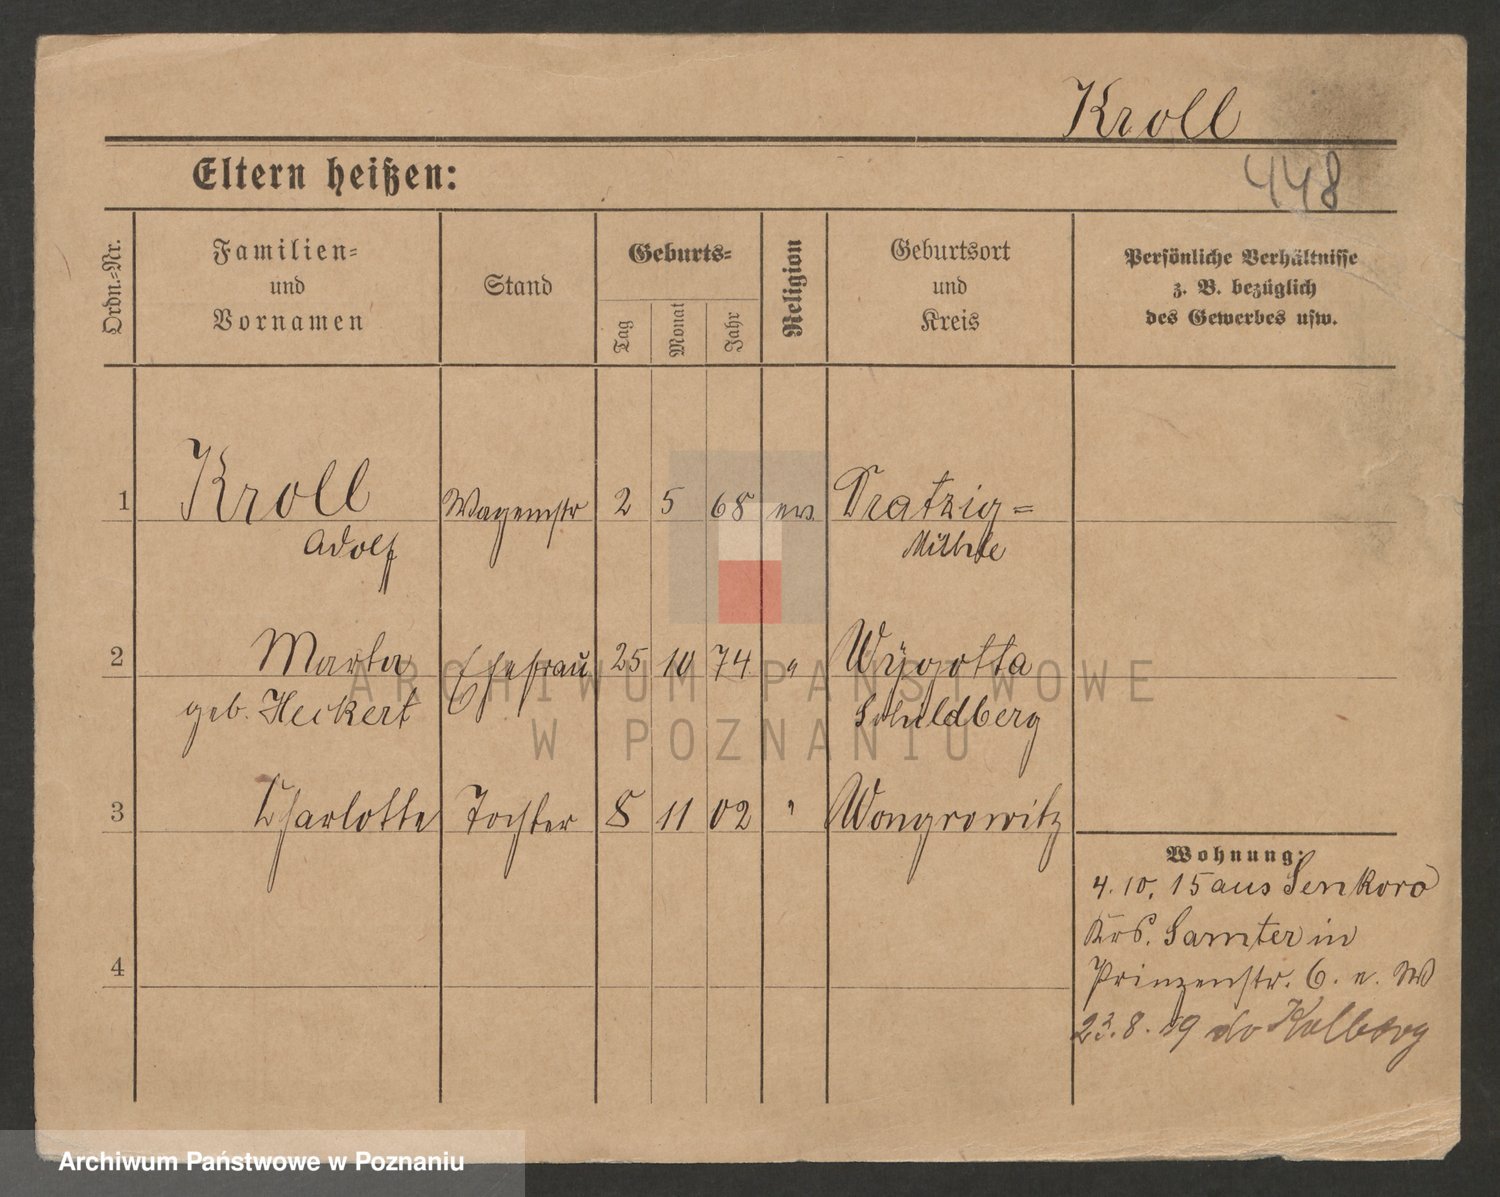 Kroll
448
Eltern heißen:
Ordn.-Nr.
Familien-
und
Vornamen
Stand
Geburts-
Tag
Monat
Jahr
Religion
Geburtsort
und
Kreis
Persönliche Verhältnisse
z. B. bezüglich
des Gewerbes usw.
1 Kroll Wagemstr 2 5 68 ev. Dratzig=
Adolf Mühle
2 Marta Ehefrau 25 10 74 " Wygotta
geb. Heckert Schildberg
3 Charlotte Tochter 8 11 02 " Wongrowitz
Wohnung:
4. 10. 15 aus Senkovo
Krs. Samter in
Prinzenstr. 6. e. W
4
23. 8. 19 do Kolberg
ARCHIWUM PAŃSTWOWE
W POZNANIU
Archiwum Państwowe w Poznaniu